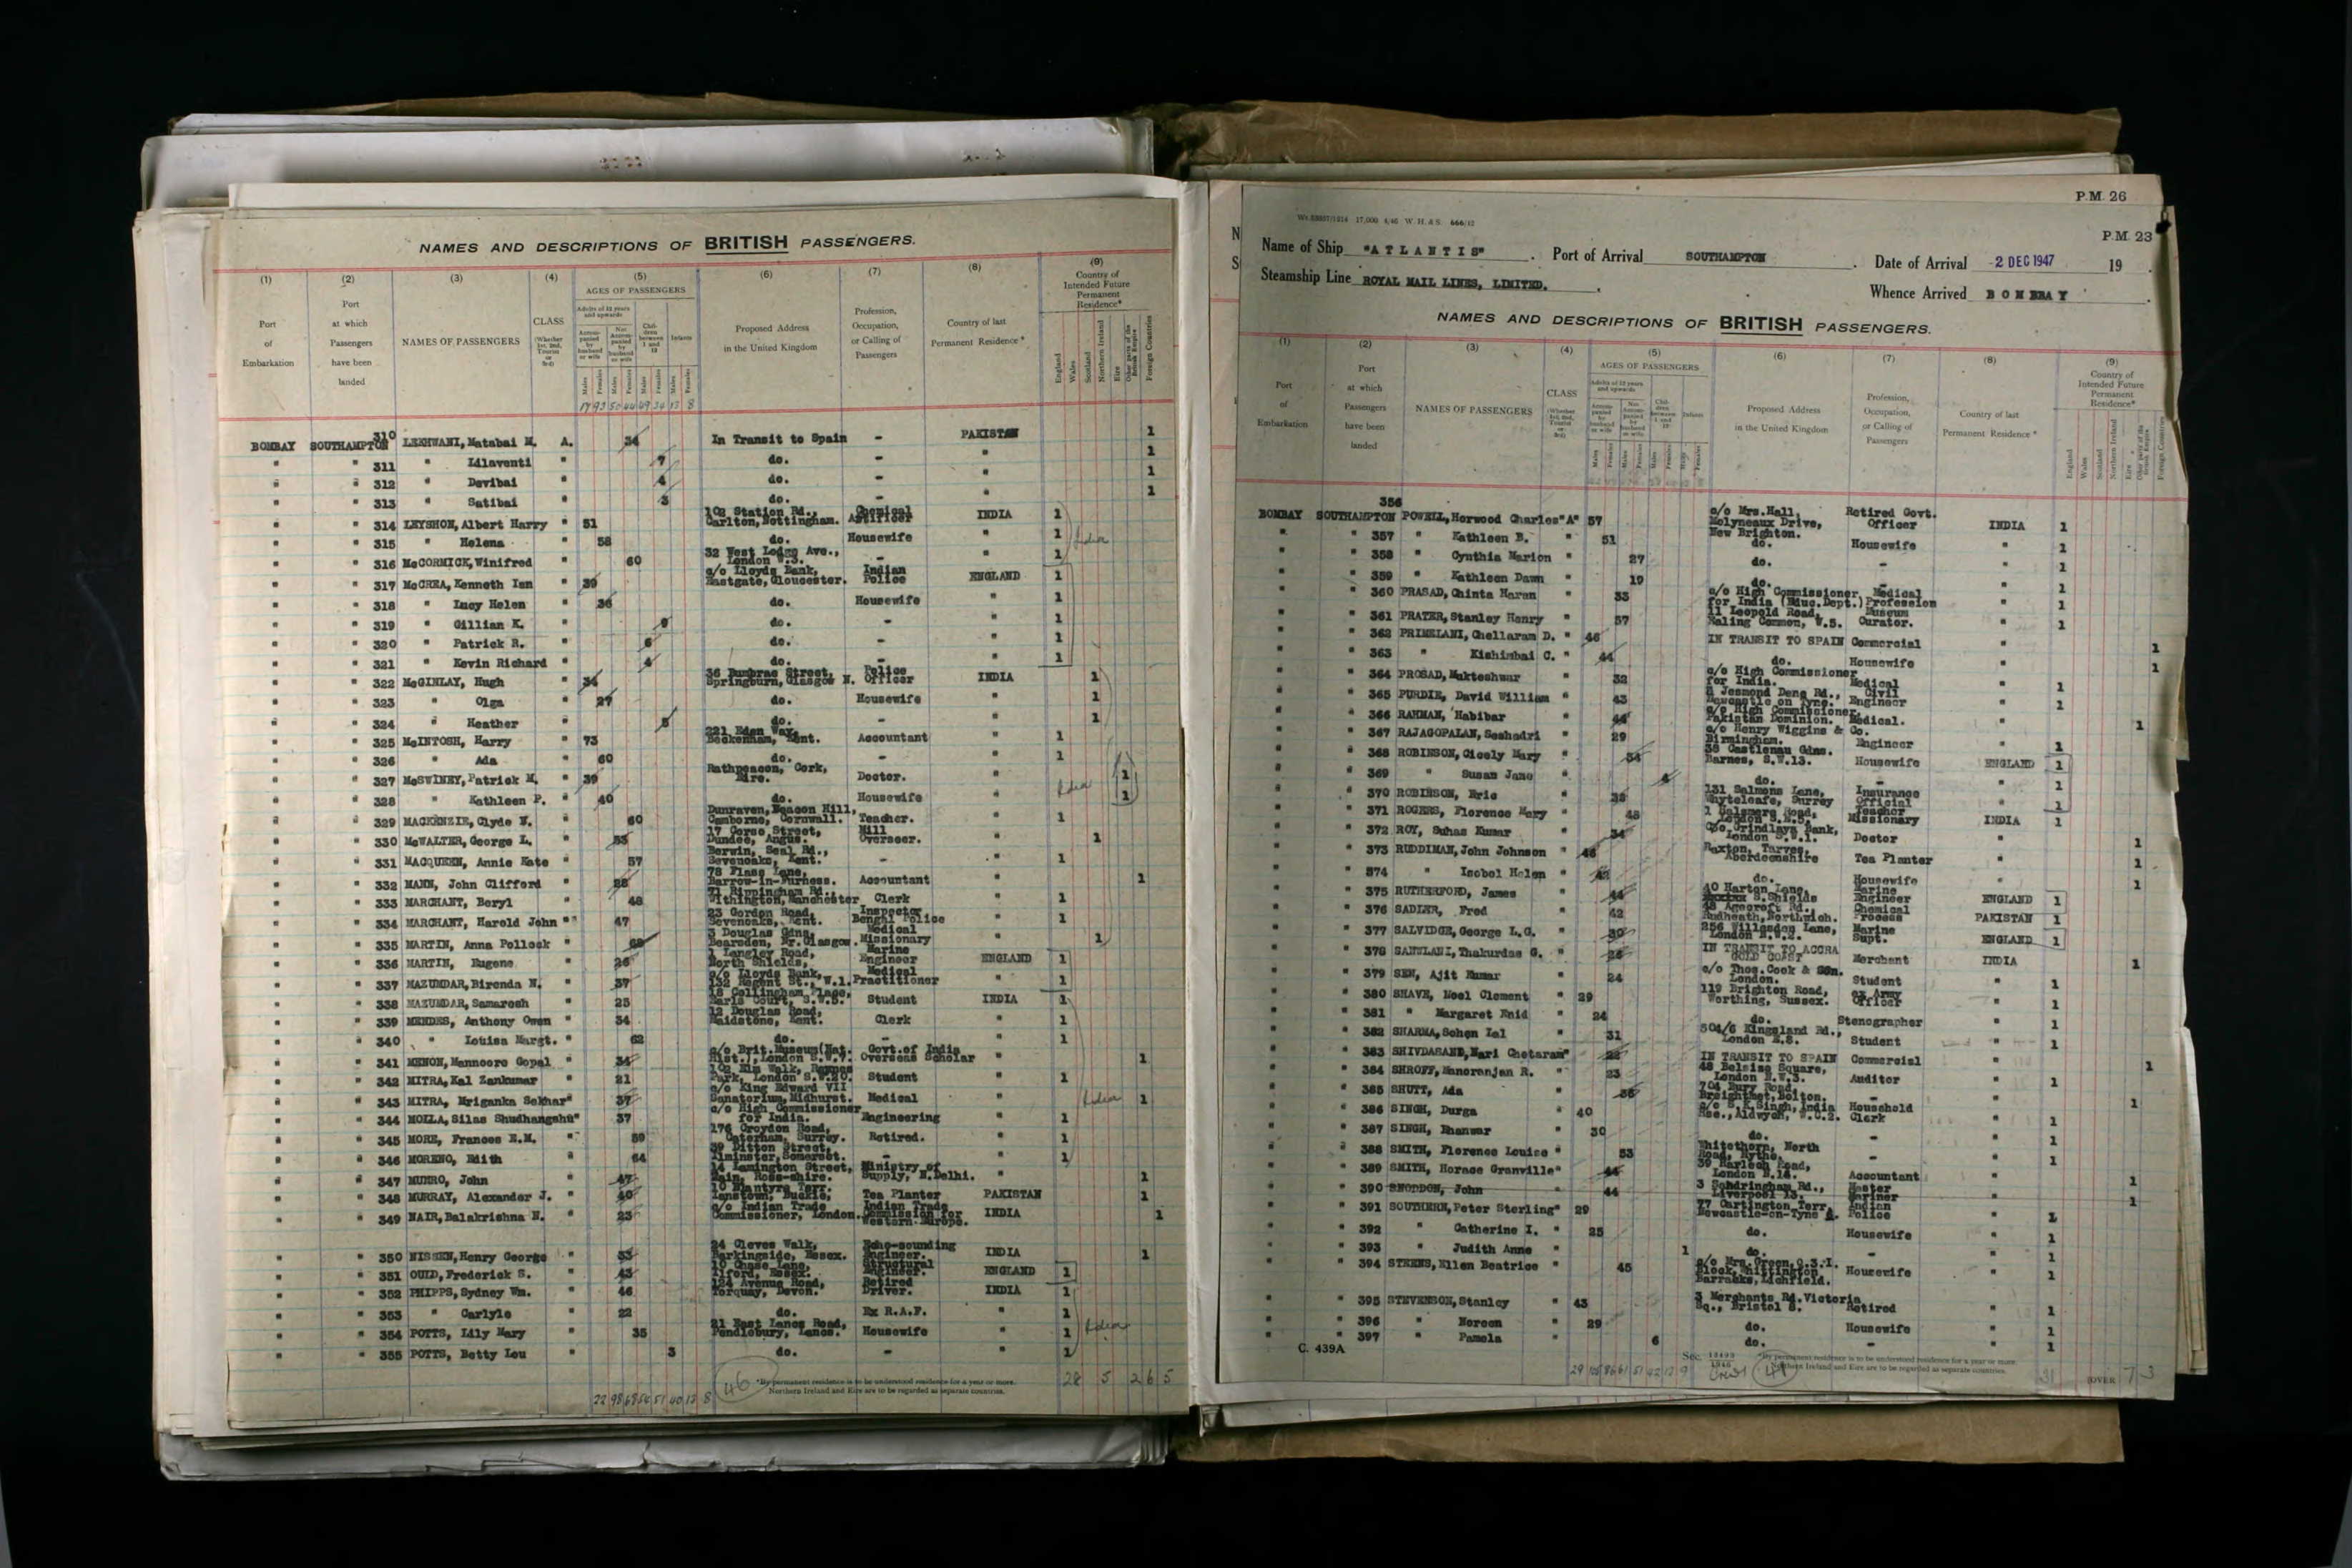 NAMES AND DESCRIPTIONS OF BRITISH PASSENGERS.
(1) (2) (3) (4) (5) (6) (7) (8) (9)
Port of Embarkation
Port at which Passengers have been landed
NAMES OF PASSENGERS
CLASS (Whether 1st, 2nd, Tourist or 3rd)
AGES OF PASSENGERS
Adults of 12 years and upwards
Accompanied by husband or wife
Not Accompanied by husband or wife
Children between 1 and 12
Infants
Males Females Males Females Males Females Males Females
Proposed Address in the United Kingdom
Profession, Occupation, or Calling of Passengers
Country of last Permanent Residence *
Country of Intended Future Permanent Residence*
England Wales Scotland Northern Ireland Eire Other parts of the British Empire Foreign Countries
BOMBAY SOUTHAMPTON 310 LEKHWANI, Matabai M. A. 34 In Transit to Spain - PAKISTAN 1
" " 311 " Lilaventi " 7 do. - " 1
" " 312 " Devibai " 4 do. - " 1
" " 313 " Satibai " 3 do. - " 1
" " 314 LEYSHON, Albert Harry " 51 102 Station Rd., Carlton, Nottingham. Chemical Artificer INDIA 1
" " 315 " Helena " 58 do. Housewife " 1
" " 316 McCORMICK, Winifred " 60 32 West Lodge Ave., London W.3. - " 1
" " 317 McCREA, Kenneth Ian " 39 c/o Lloyds Bank, Eastgate, Gloucester. Indian Police ENGLAND 1
" " 318 " Lucy Helen " 36 do. Housewife " 1
" " 319 " Gillian K. " 9 do. - " 1
" " 320 " Patrick R. " 6 do. - " 1
" " 321 " Kevin Richard " 4 do. - " 1
" " 322 McGINLAY, Hugh " 34 36 Dumbrae Street, Springburn, Glasgow N. Police Officer INDIA 1
" " 323 " Olga " 27 do. Housewife " 1
" " 324 " Heather " 5 do. - " 1
" " 325 McINTOSH, Harry " 73 221 Eden Way, Beckenham, Kent. Accountant " 1
" " 326 " Ada " 60 do. - " 1
" " 327 McSWINEY, Patrick M. " 39 Rathpeacon, Cork, Eire. Doctor. " 1
" " 328 " Kathleen P. " 40 do. Housewife " 1
" " 329 MACKENZIE, Clyde N. " 60 Dunraven, Beacon Hill, Camborne, Cornwall. Teacher. " 1
" " 330 McWALTER, George L. " 53 17 Corso Street, Dundee, Angus. Mill Overseer. " 1
" " 331 MACQUEEN, Annie Kate " 57 Berwin, Seal Rd., Sevenoaks, Kent. - " 1
" " 332 MANN, John Clifford " 28 78 Flass Lane, Barrow-in-Furness. Accountant " 1
" " 333 MARCHANT, Beryl " 48 71 Rippingham Rd., Withington, Manchester Clerk " 1
" " 334 MARCHANT, Harold John " 47 23 Gordon Road, Sevenoaks, Kent. Inspector Bengal Police " 1
" " 335 MARTIN, Anna Pollock " 3 Douglas Gdns, Bearsden, Nr. Glasgow. Medical Missionary " 1
" " 336 MARTIN, Eugene " 26 1 Langley Road, North Shields, Marine Engineer ENGLAND 1
" " 337 MAZUMDAR, Birenda N. " 37 c/o Lloyds Bank, 132 Regent St., W.1. Medical Practitioner " 1
" " 338 MAZUMDAR, Samaresh " 23 18 Collingham Place, Earls Court, S.W.5. Student INDIA 1
" " 339 MENDES, Anthony Owen " 34 12 Douglas Road, Maidstone, Kent. Clerk " 1
" " 340 " Louisa Margt. " 62 do. - " 1
" " 341 MENON, Mannoore Gopal " 34 c/o Brit. Museum (Nat. Hist.), London S.W.7. Govt. of India Overseas Scholar " 1
" " 342 MITRA, Kal Zankumar " 21 102 Elm Walk, Raynes Park, London S.W.20. Student " 1
" " 343 MITRA, Mriganka Sekhar " 37 c/o King Edward VII Sanatorium, Midhurst. Medical " 1
" " 344 MOLLA, Silas Shudhangshu " 37 c/o High Commissioner for India. Engineering " 1
" " 345 MORE, Frances E.M. " 59 176 Croydon Road, Caterham, Surrey. Retired. " 1
" " 346 MORENO, Edith " 64 39 Ditton Street, Ilminster, Somerset. - " 1
" " 347 MUNRO, John " 47 14 Lamington Street, Tain, Ross-shire. Ministry of Supply, N.Delhi. " 1
" " 348 MURRAY, Alexander J. " 40 10 Blantyre Terr. Ianstown, Buckie, Tea Planter PAKISTAN 1
" " 349 NAIR, Balakrishna N. " 23 c/o Indian Trade Commissioner, London. Indian Trade Commission for Western Europe. INDIA 1
" " 350 NISSEN, Henry George " 53 24 Cleves Walk, Barkingside, Essex. Echo-sounding Engineer. INDIA 1
" " 351 OULD, Frederick S. " 43 10 Chase Lane, Ilford, Essex. Structural Engineer. ENGLAND 1
" " 352 PHIPPS, Sydney Wm. " 46 124 Avenue Road, Torquay, Devon. Retired Driver. INDIA 1
" " 353 " Carlyle " 22 do. Ex R.A.F. " 1
" " 354 POTTS, Lily Mary " 35 21 East Lancs Road, Pendlebury, Lancs. Housewife " 1
" " 355 POTTS, Betty Lou " 3 do. - " 1
46
*By permanent residence is to be understood residence for a year or more.
Northern Ireland and Eire are to be regarded as separate countries.
28 5 26 5
P.M. 26
P.M. 23
Name of Ship "ATLANTIS" . Port of Arrival SOUTHAMPTON . Date of Arrival -2 DEC 1947 19 .
Steamship Line ROYAL MAIL LINES, LIMITED. . Whence Arrived BOMBAY .
NAMES AND DESCRIPTIONS OF BRITISH PASSENGERS.
(1) (2) (3) (4) (5) (6) (7) (8) (9)
Port of Embarkation
Port at which Passengers have been landed
NAMES OF PASSENGERS
CLASS (Whether 1st, 2nd, Tourist or 3rd)
AGES OF PASSENGERS
Adults of 12 years and upwards
Proposed Address in the United Kingdom
Profession, Occupation, or Calling of Passengers
Country of last Permanent Residence *
Country of Intended Future Permanent Residence*
England Wales Scotland Northern Ireland Eire Other parts of the British Empire Foreign Countries
BOMBAY SOUTHAMPTON 356 POWELL, Horwood Charles "A" 57 c/o Mrs. Hall, Molyneaux Drive, New Brighton. Retired Govt. Officer INDIA 1
" " 357 " Kathleen B. " 51 do. Housewife " 1
" " 358 " Cynthia Marion " 27 do. - " 1
" " 359 " Kathleen Dawn " 19 do. - " 1
" " 360 PRASAD, Chinta Haran " 33 c/o High Commissioner for India (Educ. Dept.) Medical Profession " 1
" " 361 PRATER, Stanley Henry " 57 11 Leopold Road, Ealing Common, W.5. Museum Curator. " 1
" " 362 PRIMELANI, Chellaram D. " 46 IN TRANSIT TO SPAIN Commercial " 1
" " 363 " Kishimbai C. " 44 do. Housewife " 1
" " 364 PROSAD, Mukteshwar " 32 c/o High Commissioner for India. Medical " 1
" " 365 PURDIE, David William " 43 8 Jesmond Dene Rd., Newcastle on Tyne. Civil Engineer " 1
" " 366 RAHMAN, Habibar " 44 c/o High Commissioner, Pakistan Dominion. Medical. " 1
" " 367 RAJAGOPALAN, Seshadri " 29 c/o Henry Wiggins & Co. Birmingham. Engineer " 1
" " 368 ROBINSON, Cicely Mary " 34 38 Castlenau Gdns. Barnes, S.W.13. Housewife ENGLAND 1
" " 369 " Susan Jane " 4 do. - " 1
" " 370 ROBINSON, Eric " 38 131 Salmons Lane, Whyteleafe, Surrey Insurance Official " 1
" " 371 ROGERS, Florence Mary " 48 London S.E.5. Teacher Missionary INDIA 1
" " 372 ROY, Suhas Kumar " 34 C/o Grindlays Bank, London S.W.1. Doctor " 1
" " 373 RUDDIMAN, John Johnson " 46 Raxton, Tarves, Aberdeenshire Tea Planter " 1
" " 374 " Isobel Helen " 42 do. Housewife " 1
" " 375 RUTHERFORD, James " 44 40 Harton Lane, S.Shields Marine Engineer ENGLAND 1
" " 376 SADLER, Fred " 42 48 Agecroft Rd., Rudheath, Northwich. Chemical Process PAKISTAN 1
" " 377 SALVIDGE, George L.G. " 30 256 Willesden Lane, London N.W.2. Marine Supt. ENGLAND 1
" " 378 SANWLANI, Thakurdas G. " 26 IN TRANSIT TO ACCRA GOLD COAST Merchant INDIA 1
" " 379 SEN, Ajit Kumar " 24 c/o Thos. Cook & Son. London. Student " 1
" " 380 SHAVE, Noel Clement " 29 119 Brighton Road, Worthing, Sussex. ex Army Officer " 1
" " 381 " Margaret Enid " 24 do. Stenographer " 1
" " 382 SHARMA, Sohen Lal " 31 504/6 Kingsland Rd., London E.8. Student " 1
" " 383 SHIVDASANI, Hari Chetaram " 22 IN TRANSIT TO SPAIN Commercial " 1
" " 384 SHROFF, Manoranjan R. " 23 48 Belsize Square, London N.W.3. Auditor " 1
" " 385 SHUTT, Ada " 36 704 Bury Road, Breightmet, Bolton. Household " 1
" " 386 SINGH, Durga " 40 c/o S.K. Singh, India Hse., Aldwych, W.C.2. Clerk " 1
" " 387 SINGH, Bhanwar " 30 do. - " 1
" " 388 SMITH, Florence Louise " 53 Whitethorn, North Road, Hythe. - " 1
" " 389 SMITH, Horace Granville " 44 39 Harlech Road, London N.14. Accountant " 1
" " 390 SNODDON, John " 44 3 Sandringham Rd., Liverpool 13. Master Mariner " 1
" " 391 SOUTHERN, Peter Sterling " 29 77 Cartington Terr. Newcastle-on-Tyne Indian Police " 1
" " 392 " Catherine I. " 25 do. Housewife " 1
" " 393 " Judith Anne " 1 do. - " 1
" " 394 STEENS, Ellen Beatrice " 45 c/o Mrs. Green, Q.3.I. Block, Whittington Barracks, Lichfield. Housewife " 1
" " 395 STEVENSON, Stanley " 43 3 Merchants Rd. Victoria Sq., Bristol 8. Retired " 1
" " 396 " Noreen " 29 do. Housewife " 1
" " 397 " Pamela " 6 do. - " 1
C. 439A
*By permanent residence is to be understood residence for a year or more.
Northern Ireland and Eire are to be regarded as separate countries.
31 [OVER 7 3